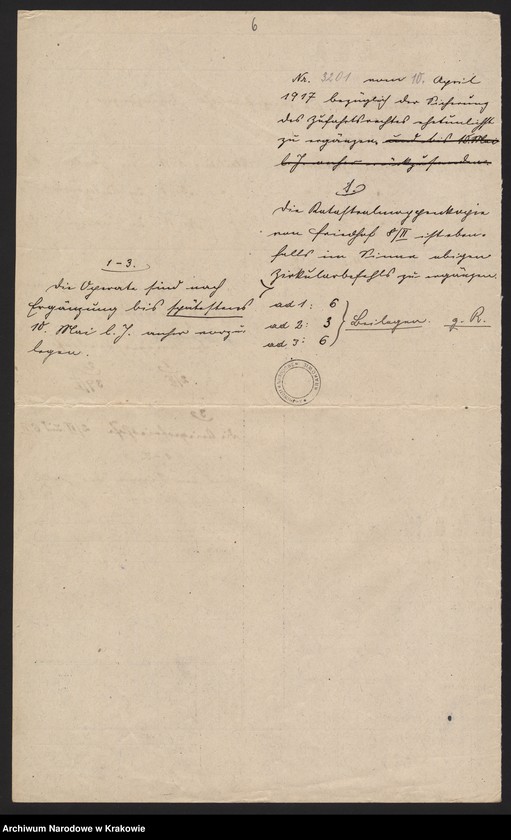 6
Nr. 3201 vom 10. April
1917 bezüglich der Sicherung
des Zufahrtsrechtes ehetunlichst
zu ergänzen und bis 10. Mai
l. J. anher rückzusenden.
3.)
Die Katastralmappenkopie
von Friedhof 8/II ist eben-
falls im Sinne obigen
Zirkularbefehls zu ergänzen.
1-3.
Die Operate sind nach
Ergänzung bis spätestens
10. Mai l. J. anher vorzu-
legen.
ad 1: 6
ad 2: 3 } Beilagen. g. R.
ad 3: 6
Archiwum Narodowe w Krakowie